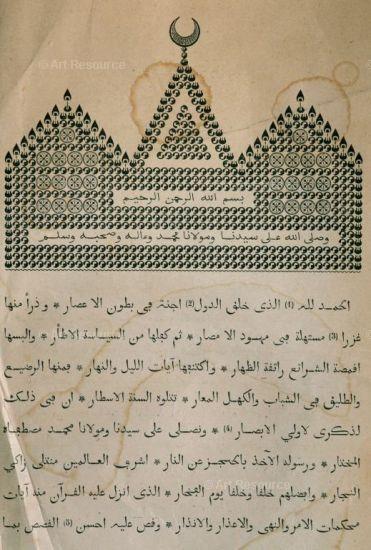 © Art Resource
© Art Resource
بسم الله الرحمن الرحيم
وصلى الله على سيدنا ومولانا محمد وءاله وصحبه وسلم
الحمد لله (1) الذى خلق الدول (2) اجنة في بطون الاعصار * وذرأ منها
غزرا (3) مستهلة في مهود الامصار * ثم كفلها من السياسة الاظأر * والبسها
اقمصة الشرائع رائقة الظهار * واكتنفها آيات الليل والنهار * فمنها الرضيع
والطليق في الشباب والكهل المعار * تتلوه السنة الاسطار * ان في ذلك
لذكرى لاولي الابصار (4) * ونصلى على سيدنا ومولانا محمد مصطفاه
المختار * ورسوله الآخذ بالحجز عن النار * اشرف العالمين زاكي
النجار * وافضلهم خلقا وخلقا يوم الفخار * الذى انزل عليه القرآن منه آيات
محكمات الامر والنهي والاعذار والانذار * وقص عليه احسن (5) القصص بما